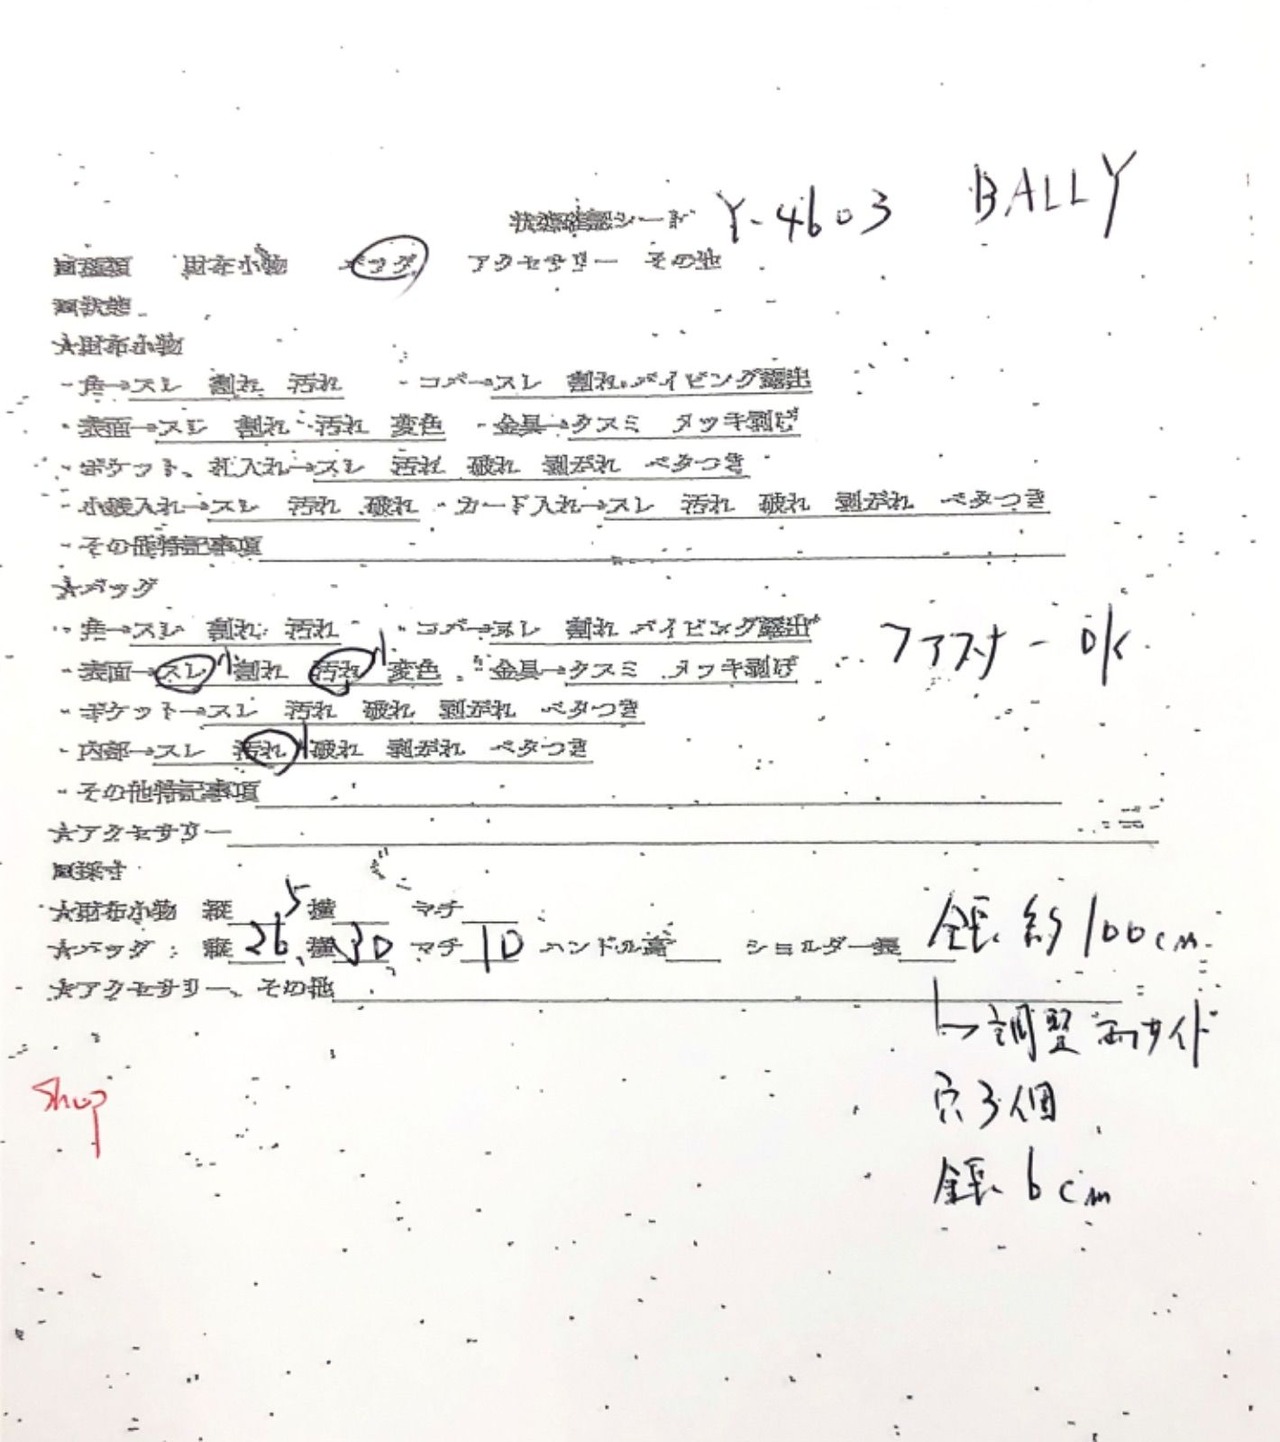 状態確認シート Y-4603 BALLY
■種類 財布小物 バッグ アクセサリー その他
■状態
★財布小物
・角→スレ 割れ 汚れ ・コバ→スレ 割れ パイピング露出
・表面→スレ 割れ 汚れ 変色 ・金具→クスミ メッキ剥げ
・ポケット、札入れ→スレ 汚れ 破れ 剥がれ ベタつき
・小銭入れ→スレ 汚れ 破れ ・カード入れ→スレ 汚れ 破れ 剥がれ ベタつき
・その他特記事項
★バッグ
・角→スレ 割れ 汚れ ・コバ→スレ 割れ パイピング露出 ファスナーOK
・表面→スレ小 割れ 汚れ小 変色 ・金具→クスミ メッキ剥げ
・ポケット→スレ 汚れ 破れ 剥がれ ベタつき
・内部→スレ 汚れ小 破れ 剥がれ ベタつき
・その他特記事項
★アクセサリー
■採寸
★財布小物 縦 横 マチ
★バッグ:縦26.5 横30 マチ10 ハンドル高 ショルダー長 全長約100cm
★アクセサリー、その他
↳調整両サイド
穴3個
全長6cm
Shop